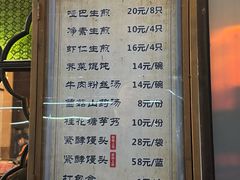 哑巴生煎 20元/8只
净素生煎 10元/4只
虾仁生煎 16元/4只
荠菜馄饨 14元/碗
牛肉粉丝汤 14元/碗
山药汤 8元/份
桂花糖芋艿 10元/份
紧酵馒头 28元/袋
紧酵馒头 58元/蓝